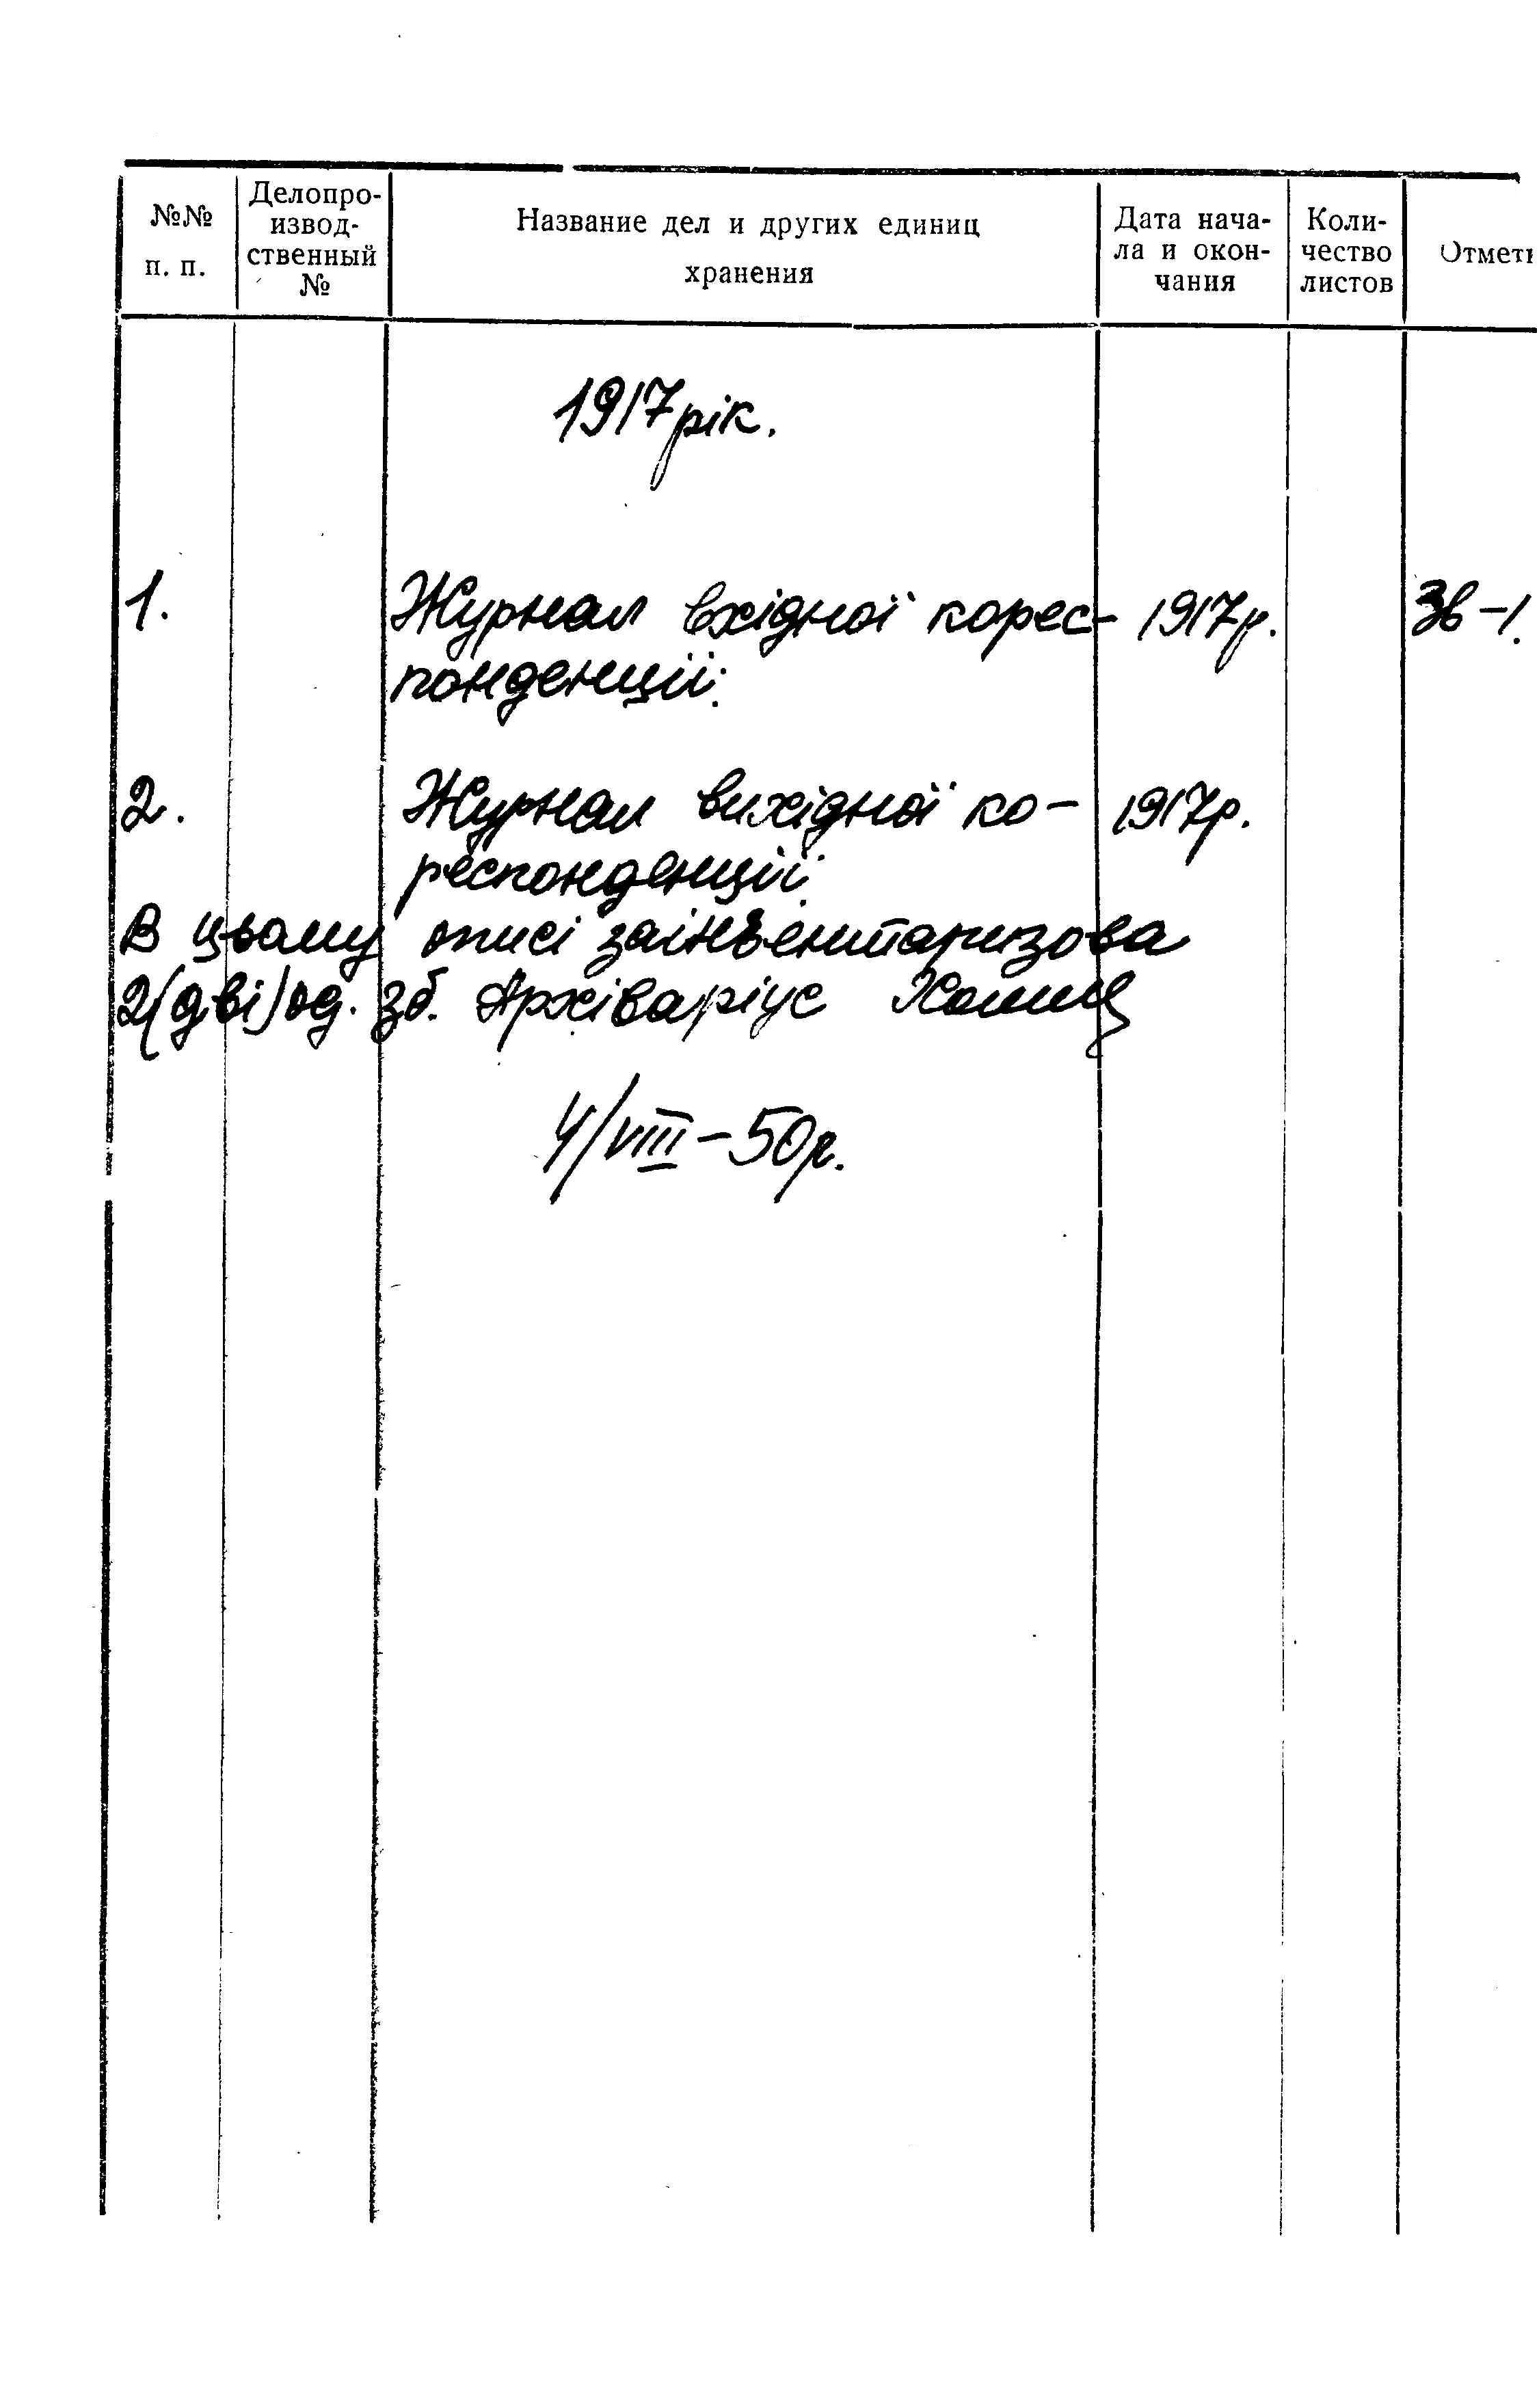 №№ п. п.
Делопро-
извод-
ственный
№
Название дел и других единиц
хранения
Дата нача-
ла и окон-
чания
Коли-
чество
листов
Отмет
1917 рік.
1. Журнал вхідної корес- 1917р.
понденції.
2. Журнал вихідної ко- 1917р.
респонденції.
В цьому описі заінвентаризова
2(дві) од. зб. Архіваріус
4/VIII – 50р.